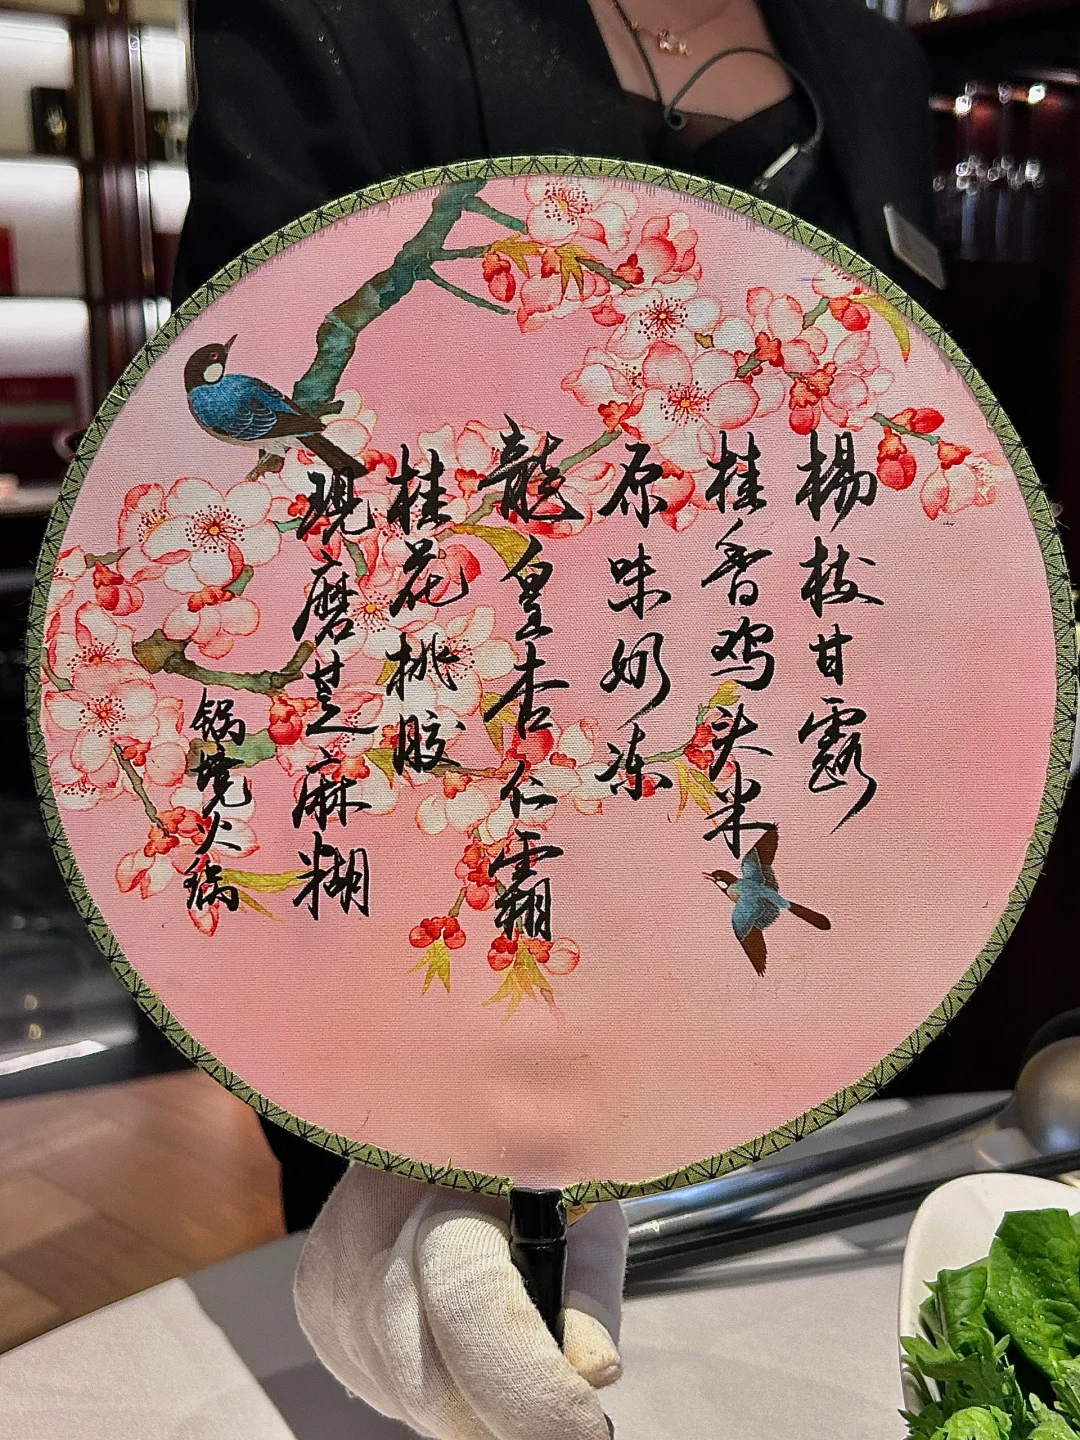 楊枝甘露
桂香鸡头米
原味奶冻
龍皇杏仁霜
桂花桃胶
现磨芝麻糊
锅境火锅